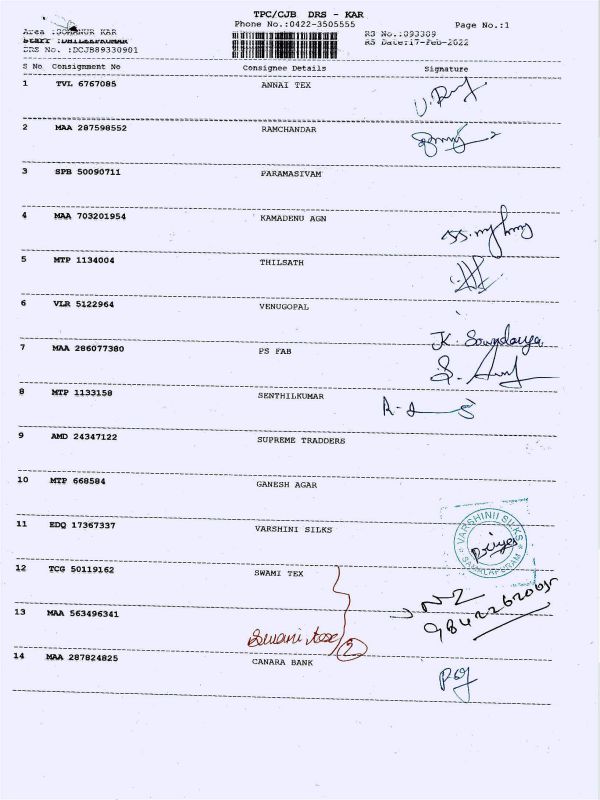 TPC/CJB DRS - KAR
Phone No.:0422-3505555
Page No.:1
Area :SOMANUR KAR
RS No.:093309
Staff :DHILEEPKUMAR
RS Date:17-Feb-2022
DRS No. :DCJB89330901
S No Consignment No Consignee Details Signature
1 TVL 6767085 ANNAI TEX
2 MAA 287598552 RAMCHANDAR
3 SPB 50090711 PARAMASIVAM
4 MAA 703201954 KAMADENU AGN
5 MTP 1134004 THILSATH
6 VLR 5122964 VENUGOPAL
K. Sowndarya
7 MAA 286077380 PS FAB
8 MTP 1133158 SENTHILKUMAR
9 AMD 24347122 SUPREME TRADDERS
10 MTP 668584 GANESH AGAR
11 EDQ 17367337 VARSHINI SILKS
VARSHINII SILKS
12 TCG 50119162 SWAMI TEX
13 MAA 563496341
2
14 MAA 287824825 CANARA BANK